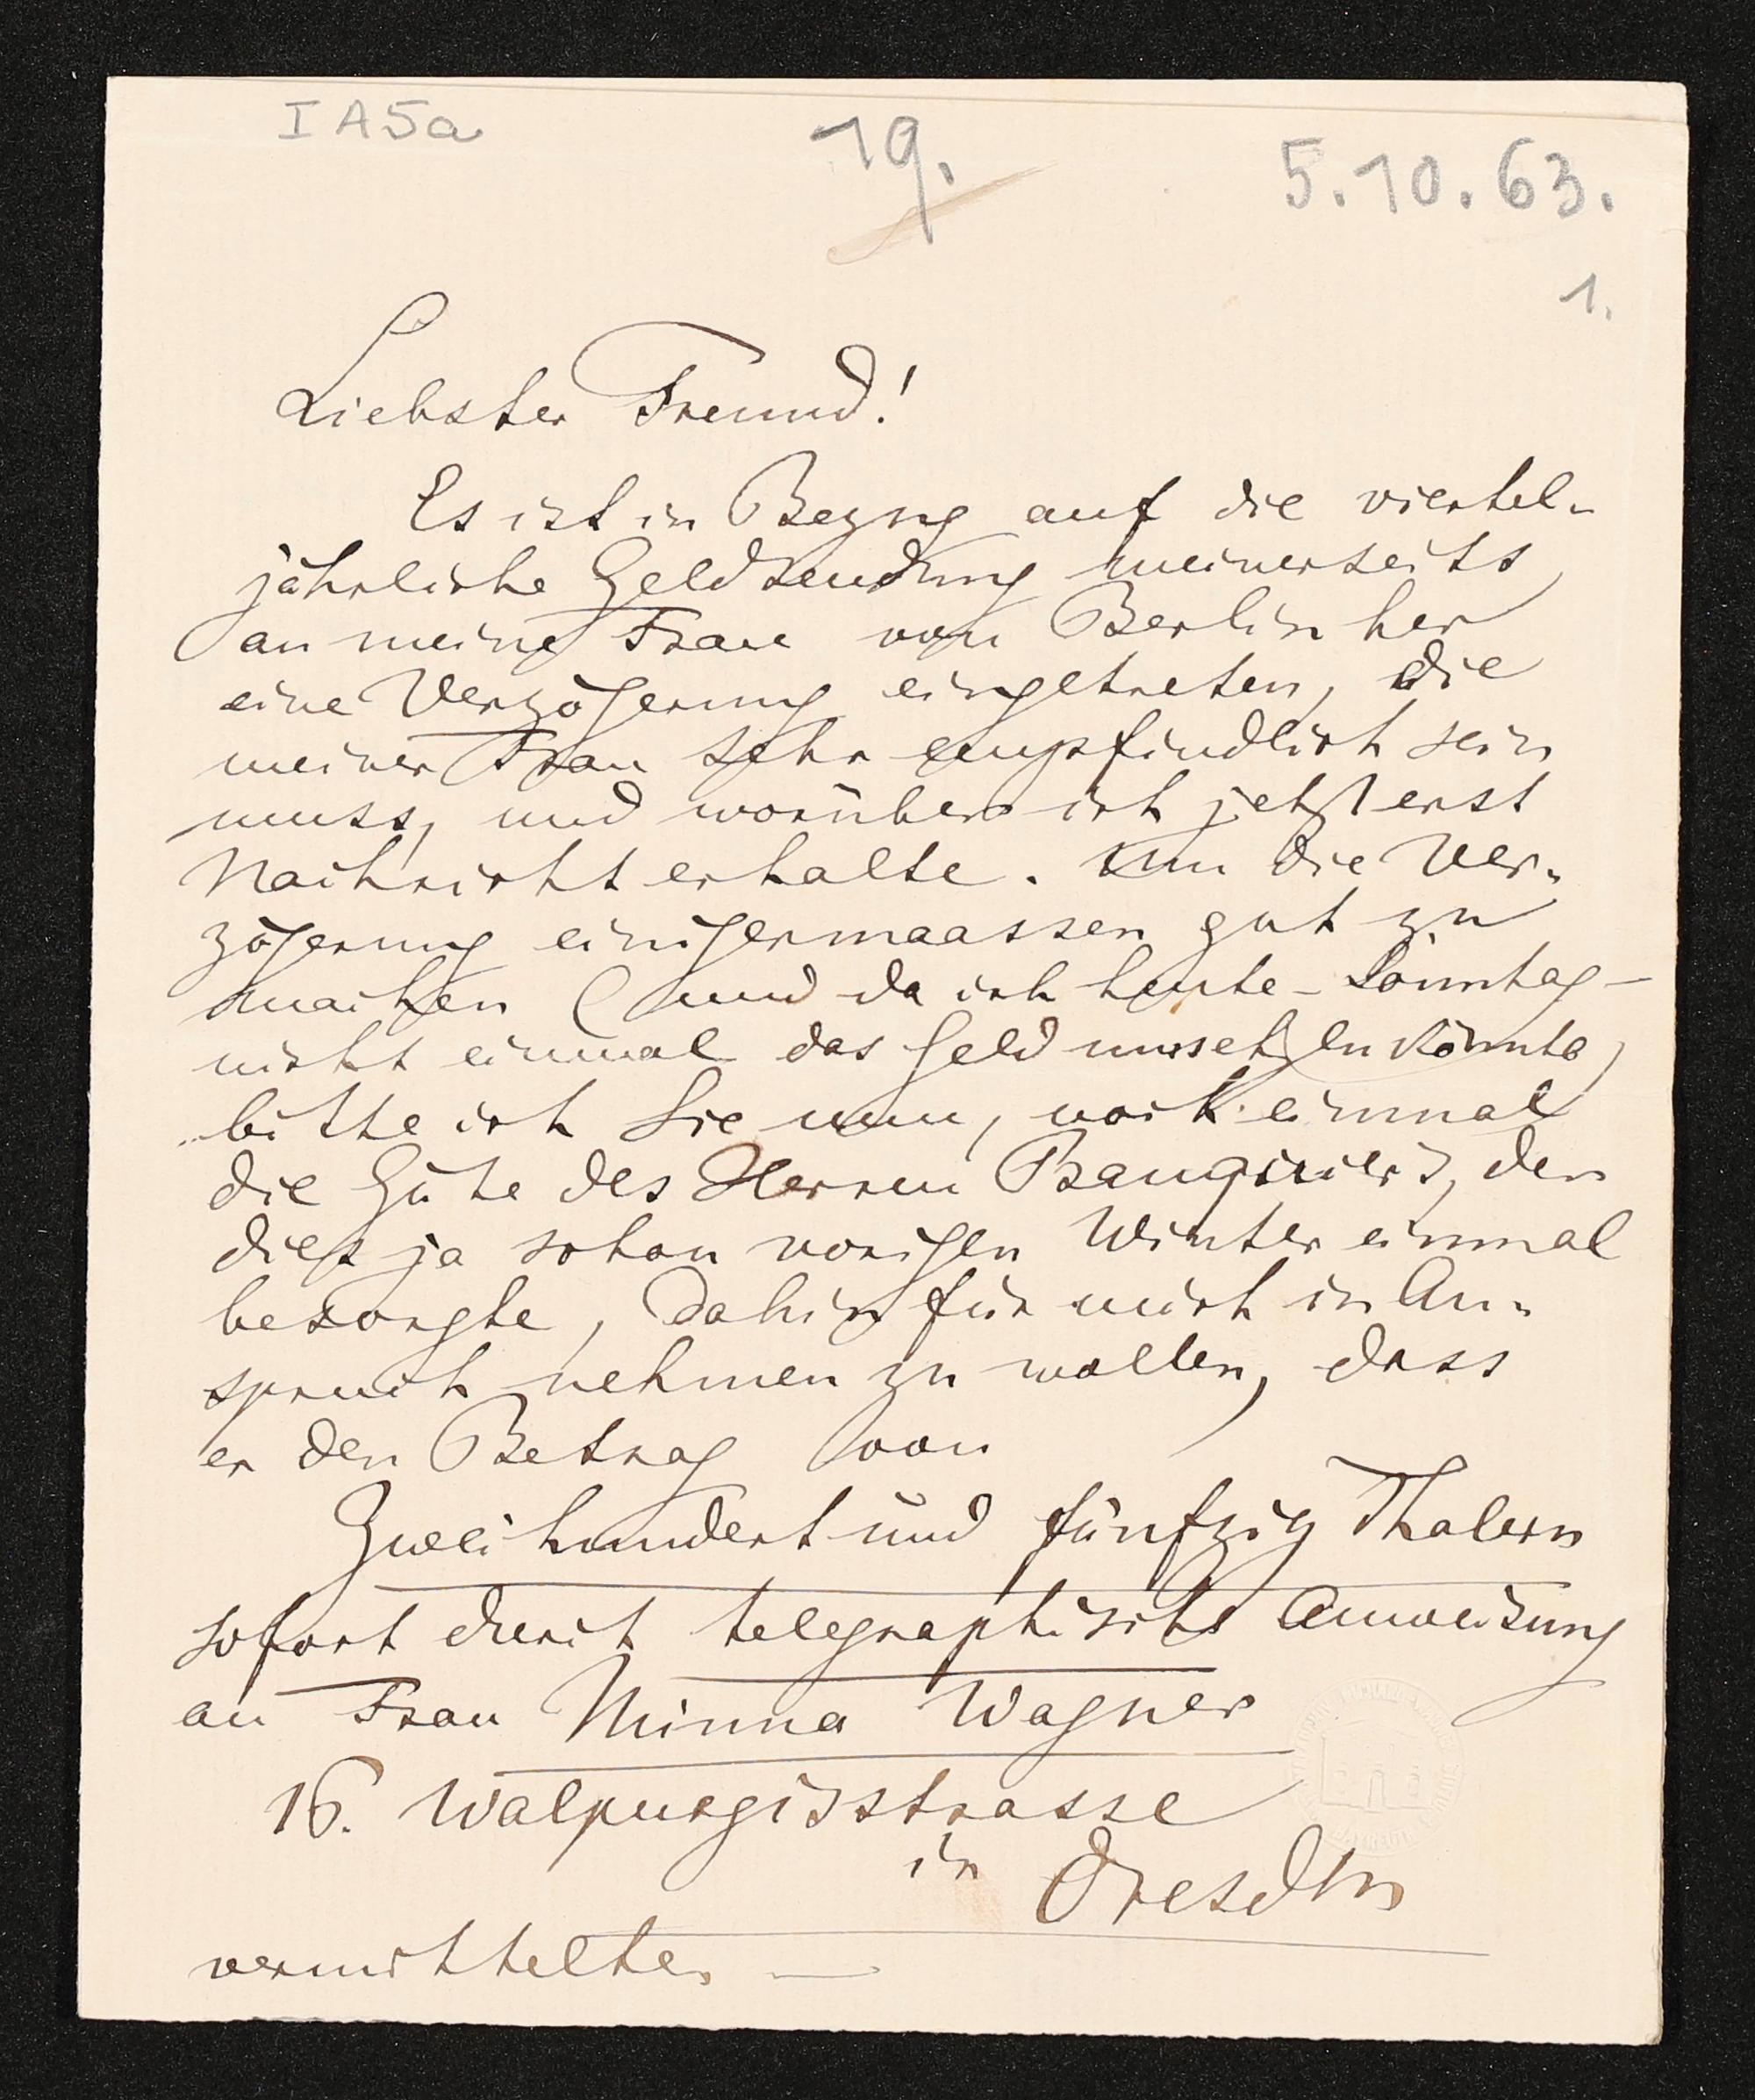 I A5a
19.
5.10.63.
1.
Liebster Freund!
Es ist in Bezug auf die viertel-
jährliche Geldsendung meinerseits
an meine Frau von Berlin her
eine Verzögerung eingetreten, die
meiner Frau sehr empfindlich sein
muss, und worüber ich jetzt erst
Nachricht erhalte. Um die Ver-
zögerung einigermaassen gut zu
machen (und da ich heute - Sonntag -
nicht einmal das Geld umsetzen könnte)
bitte ich Sie nun, noch einmal
die Güte des Herren Banquier's, der
diess ja schon vorigen Winter einmal
besorgte, dahin für mich in An-
spruch nehmen zu wollen, dass
er den Betrag von
Zweihundert und fünfzig Thalern
sofort durch telegraphische Anweisung
an Frau Minna Wagner
16. Walpurgisstrasse
in Dresden
vermittelte. —